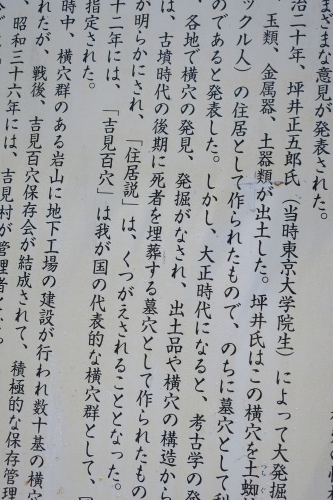 まざまな意見が発表された。
治二十年、坪井正五郎氏（当時東京大学院生）によって大発掘
、玉類、金属器、土器類が出土した。坪井氏はこの横穴を土蜘
ックル人）の住居として作られたもので、のちに墓穴として利
のであると発表した。しかし、大正時代になると、考古学の発
、各地で横穴の発見、発掘がなされ、出土品や横穴の構造から
は、古墳時代の後期に死者を埋葬する墓穴として作られたもの
か明らかにされ、「住居説」は、くつがえされることとなった。
十二年には、「吉見百穴」は我が国の代表的な横穴群として、
指定された。
時中、横穴群のある岩山に地下工場の建設が行われ数十基の横穴
れたが、戦後、吉見百穴保存会が結成されて、積極的な保存管理
、昭和三十六年には、吉見村が管理者と